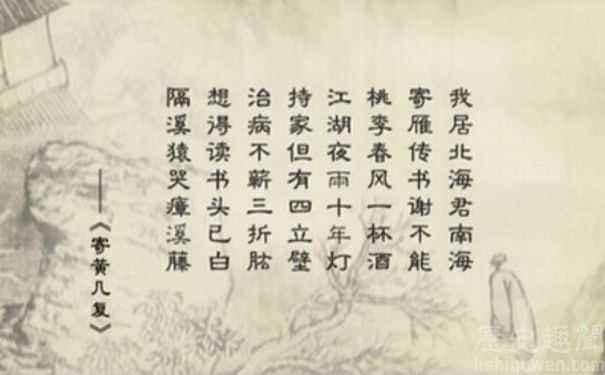 我居北海君南海
寄雁传书谢不能
桃李春风一杯酒
江湖夜雨十年灯
持家但有四立壁
治病不蕲三折肱
想得读书头已白
隔溪猿哭瘴溪藤
——《寄黄几复》
历史趣闻
lishiquwen.com